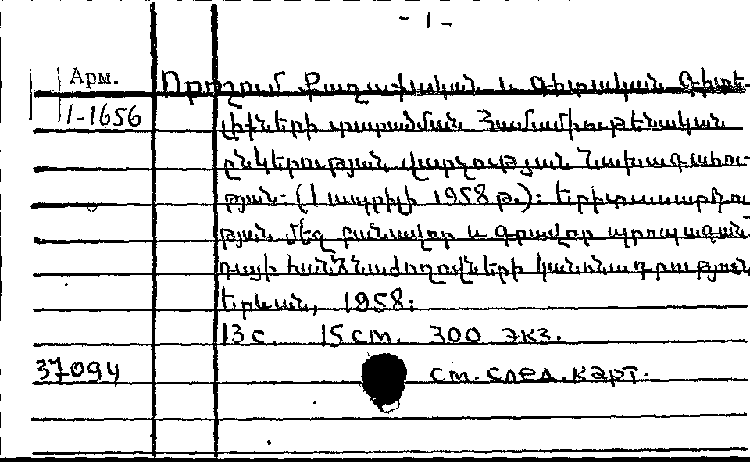 - 1 -
Арм. Որոշում Քաղաքական և Գիտական Գիտե-
1-1656 լիքների տարածման Համամիութենական
ընկերության վարչության Նախագահու-
թյան: (1 ապրիլի 1958 թ.): Երիտասարդու
թյան մեջ բանավոր և գրավոր պրոպագան
դայի հանձնաժողովների կանոնադրություն
Երևան, 1958:
13 с. 15 cm. 300 экз.
37094 см. след. карт.